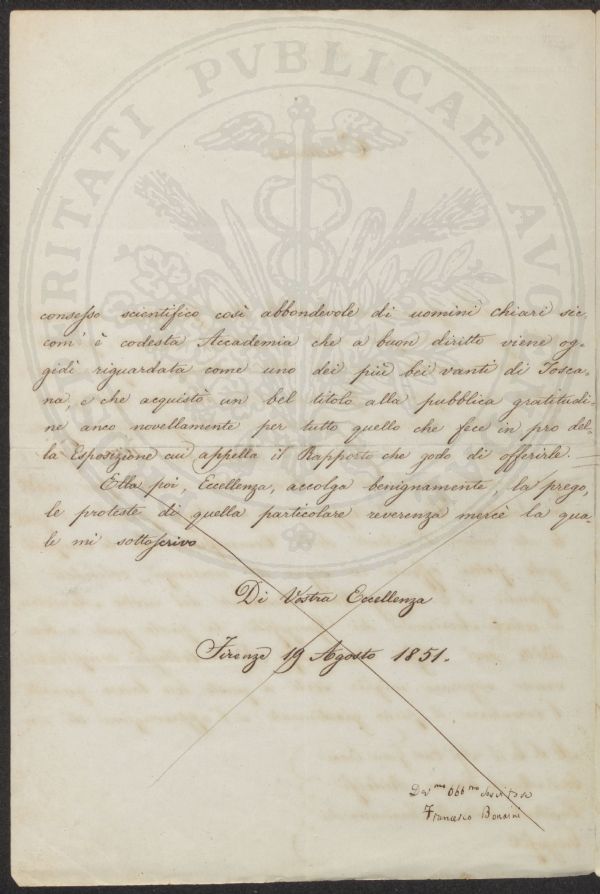 PROSPERITATI PVBLICAE AVGENDAE
consesso scientifico così abbondevole di uomini chiari sic
com' è codesta Accademia che a buon diritto viene og=
gidì riguardata come uno dei più bei vanti di Tosca=
na, e che acquistò un bel titolo alla pubblica gratitudi=
ne anco novellamente per tutto quello che fece in pro del=
la Esposizione cui appella il Rapporto che godo di offerirle. —
Ella poi, Eccellenza, accolga benignamente, la prego,
le proteste di quella particolare reverenza mercè la qua=
le mi sottoscrivo
Di Vostra Eccellenza
Firenze 19 Agosto 1851.
Dev.mo Obb.mo
Francesco Bonaini